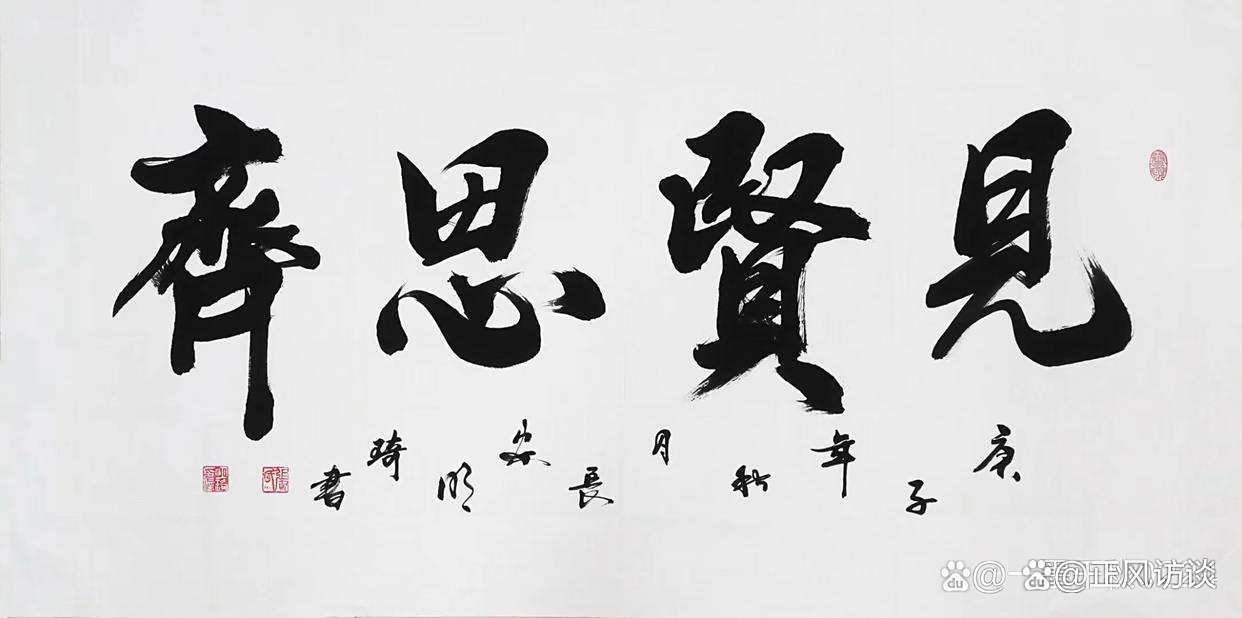 見賢思齊
庚子年秋月長安明琦書
@正风访谈